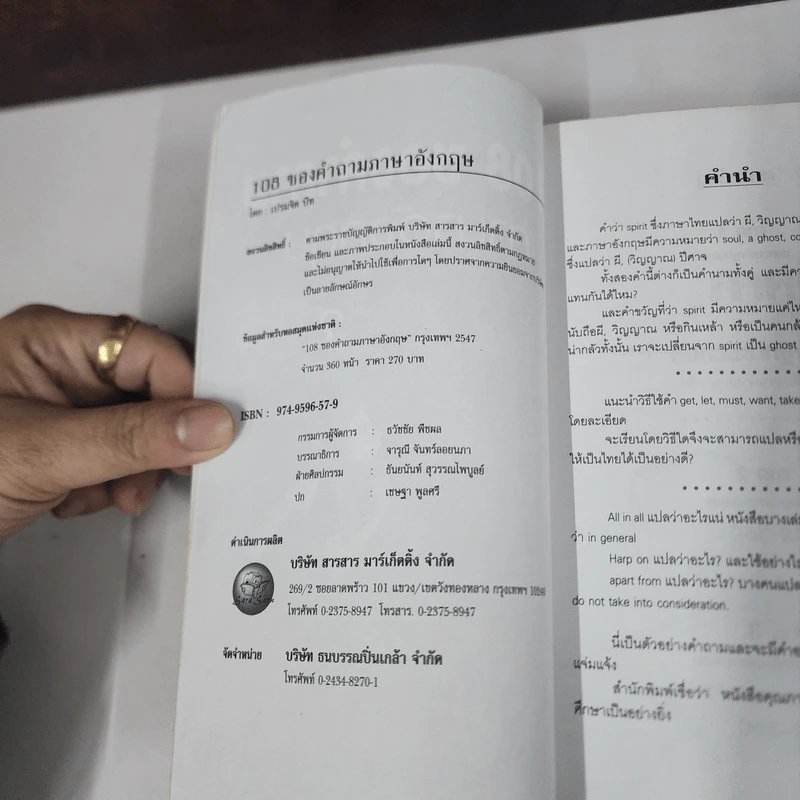 108 ของคำถามภาษาอังกฤษ
โดย : เปรมจิต บีท
สงวนลิขสิทธิ์ : ตามพระราชบัญญัติการพิมพ์ บริษัท สารสาร มาร์เก็ตติ้ง จำกัด
ข้อเขียน และภาพประกอบในหนังสือเล่มนี้ สงวนลิขสิทธิ์ตามกฎหมาย
และไม่อนุญาตให้นำไปใช้เพื่อการใดๆ โดยปราศจากความยินยอมจาก
เป็นลายลักษณ์อักษร
ข้อมูลสำหรับหอสมุดแห่งชาติ :
"108 ของคำถามภาษาอังกฤษ" กรุงเทพฯ 2547
จำนวน 360 หน้า ราคา 270 บาท
ISBN : 974-9596-57-9
กรรมการผู้จัดการ : ธวัชชัย พืชผล
บรรณาธิการ : จารุณี จันทร์ลอยนภา
ฝ่ายศิลปกรรม : ธันยนันท์ สุวรรณไพบูลย์
ปก : เชษฐา พูลศรี
ดำเนินการผลิต
บริษัท สารสาร มาร์เก็ตติ้ง จำกัด
269/2 ซอยลาดพร้าว 101 แขวง/เขตวังทองหลาง กรุงเทพฯ
โทรศัพท์ 0-2375-8947 โทรสาร. 0-2375-8947
จัดจำหน่าย บริษัท ธนบรรณปิ่นเกล้า จำกัด
โทรศัพท์ 0-2434-8270-1
คำนำ
คำว่า spirit ซึ่งภาษาไทยแปลว่า ผี, วิญญาณ
และภาษาอังกฤษมีความหมายว่า soul, a ghost,
ซึ่งแปลว่า ผี, (วิญญาณ) ปีศาจ
ทั้งสองคำนี้ต่างก็เป็นคำนามทั้งคู่ และมี
แทนกันได้ไหม?
และคำขวัญที่ว่า spirit มีความหมายแค่
นับถือผี, วิญญาณ หรือกินเหล้า หรือเป็นคน
น่ากลัวทั้งนั้น เราจะเปลี่ยนจาก spirit เป็น ghost
แนะนำวิธีใช้คำ get, let, must, want, take
โดยละเอียด
จะเรียนโดยวิธีใดจึงจะสามารถแปล
ให้เป็นไทยได้เป็นอย่างดี?
All in all แปลว่าอะไรแน่ หนังสือบาง
ว่า in general
Harp on แปลว่าอะไร? และใช้อย่าง
apart from แปลว่าอะไร? บางคนแปล
do not take into consideration.
นี่เป็นตัวอย่างคำถามและจะมี
แจ่มแจ้ง
สำนักพิมพ์เชื่อว่า หนังสือ
ศึกษาเป็นอย่างยิ่ง